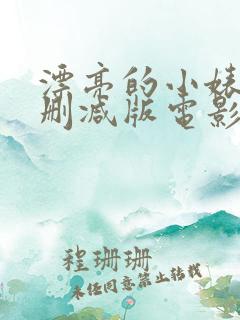 漂亮的小婊
删减版电影
程珊珊
未经同意禁止转载